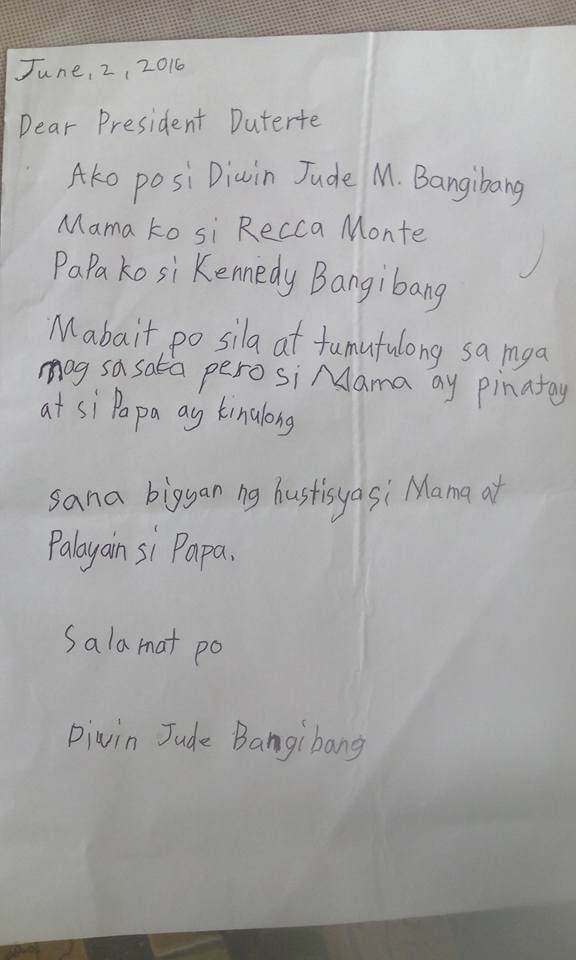 June, 2, 2016
Dear President Duterte
Ako po si Diwin Jude M. Bangibang
Mama ko si Recca Monte
PaPa ko si Kennedy Bangibang
Mabait po sila at tumutulong sa mga
mag sasaka pero si Mama ay pinatay
at si Papa ay kinulong
sana bigyan ng hustisya si Mama at
Palayain si Papa.
Salamat po
Diwin Jude Bangibang